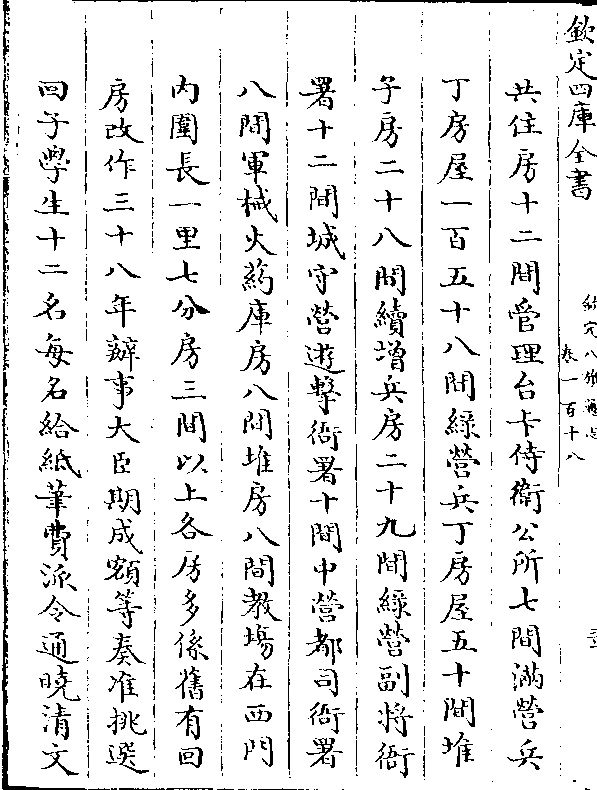 欽定四庫全書
欽定八旗通志
卷一百十八
共住房十二間管理台卡侍衛公所七間滿營兵
丁房屋一百五十八間綠營兵丁房屋五十間堆
子房二十八間續增兵房二十九間綠營副將衙
署十二間城守營遊擊衙署十間中營都司衙署
八間軍械火藥庫房八間堆房八間教塲在西門
內圍長一里七分房三間以上各房多係舊有回
房改作三十八年辦事大臣期成額等奏准挑選
回子學生十二名每名給紙筆費派令通曉清文